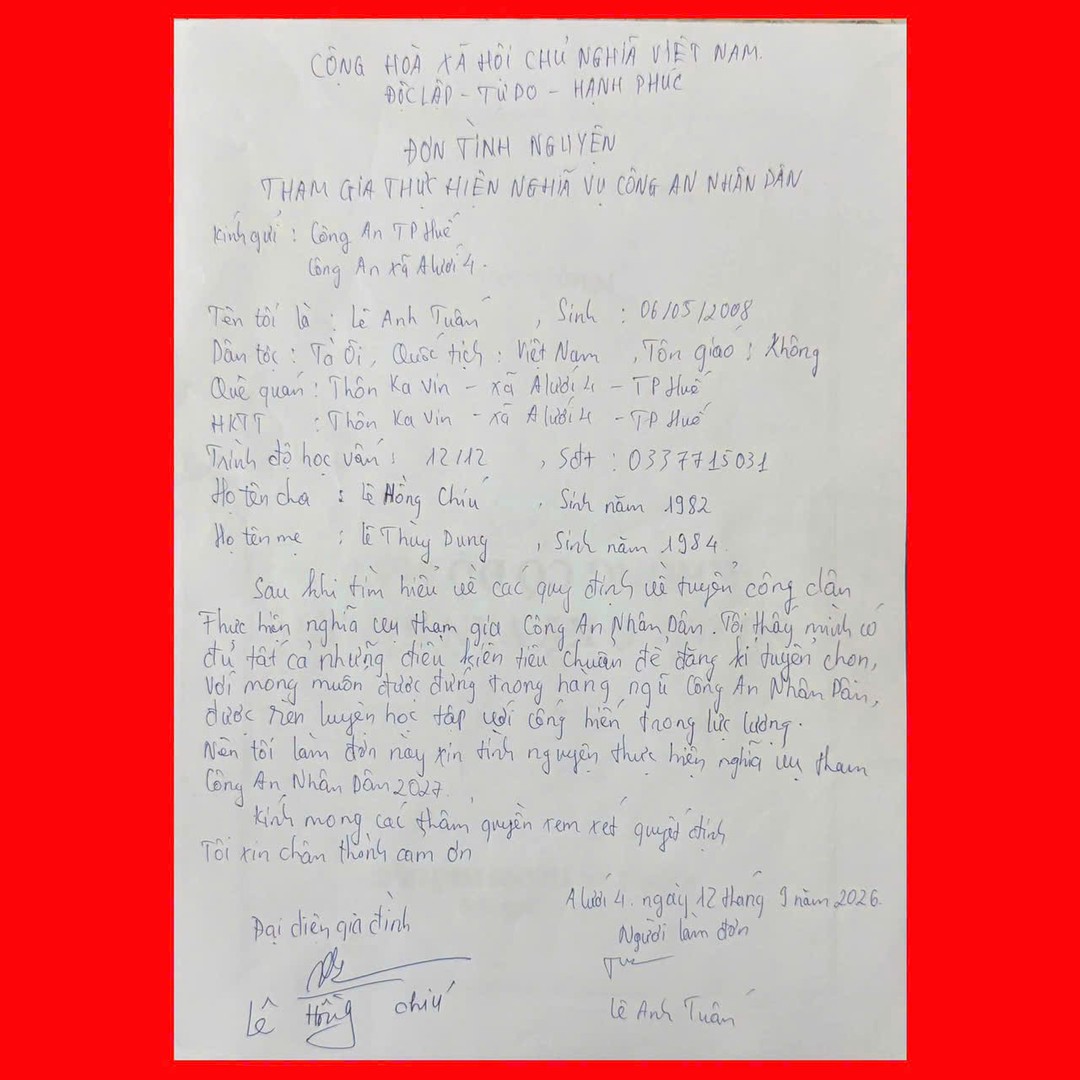 CỘNG HOÀ XÃ HÔI CHỦ NGHIÃ VIỆT NAM.
ĐỘC LẬP - TỰ DO - HẠNH PHÚC
ĐƠN TÌNH NGUYỆN
THAM GIA THỰC HIỆN NGHIÃ VỤ CÔNG AN NHÂN DÂN
Kính gửi : Công An TP Huế
Công An xã A lưới 4.
Tên tôi là : Lê Anh Tuấn , Sinh : 06/05/2008
Dân tộc : Tà Ôi, Quốc tịch : Việt Nam , Tôn giáo : Không
Quê quán : Thôn Ka Vin - xã A lưới 4 - TP Huế
HKTT : Thôn Ka Vin - xã A lưới 4 - TP Huế
Trình độ học vấn : 12/12 , Sđt : 0337715031
Họ tên cha : Lê Hồng Chiú , Sinh năm 1982
Họ tên mẹ : Lê Thùy Dung , Sinh năm 1984.
Sau khi tìm hiểu về các quy định về tuyển công dân
Thực hiện nghĩa vụ tham gia Công An Nhân Dân. Tôi thấy mình có
đủ tất cả những điều kiên tiêu chuẩn để đăng kí tuyển chọn,
Với mong muốn được đứng trong hàng ngũ Công An Nhân Dân,
được rèn luyện học tập với cống hiến trong lực lượng.
Nên tôi làm đơn này xin tình nguyện thực hiện nghĩa vụ tham
Công An Nhân Dân 2027.
Kính mong các thẩm quyền xem xét quyết định
Tôi xin chân thành cam ơn
A lưới 4. ngày 12 tháng 9 năm 2026.
Đại diên gia đình
Người làm đơn
Lê Hồng Chiú
Lê Anh Tuấn